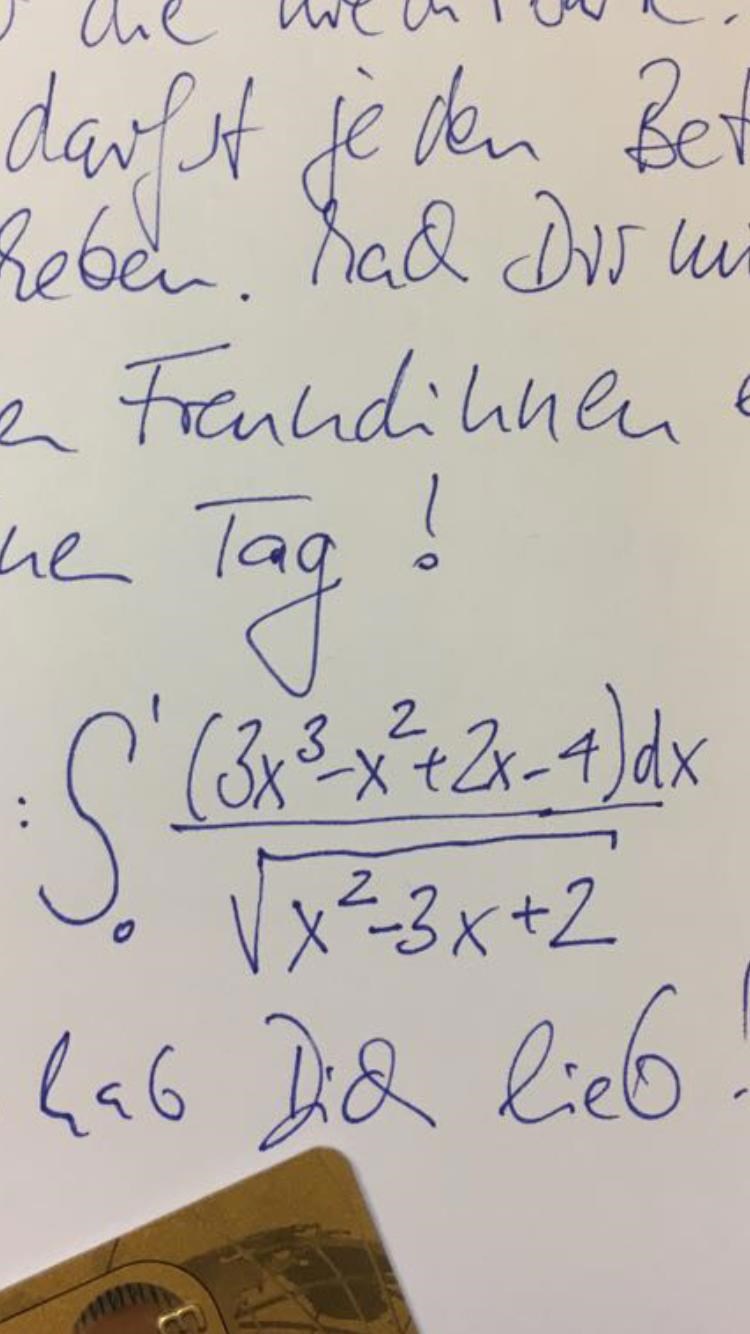 die
darfst jeden Bet
heben. Mach Dir mi
en Freundinnen e
ne Tag !
: ∫₀¹ (3x³-x²+2x-4)dx / √(x²-3x+2)
hab Dich lieb !